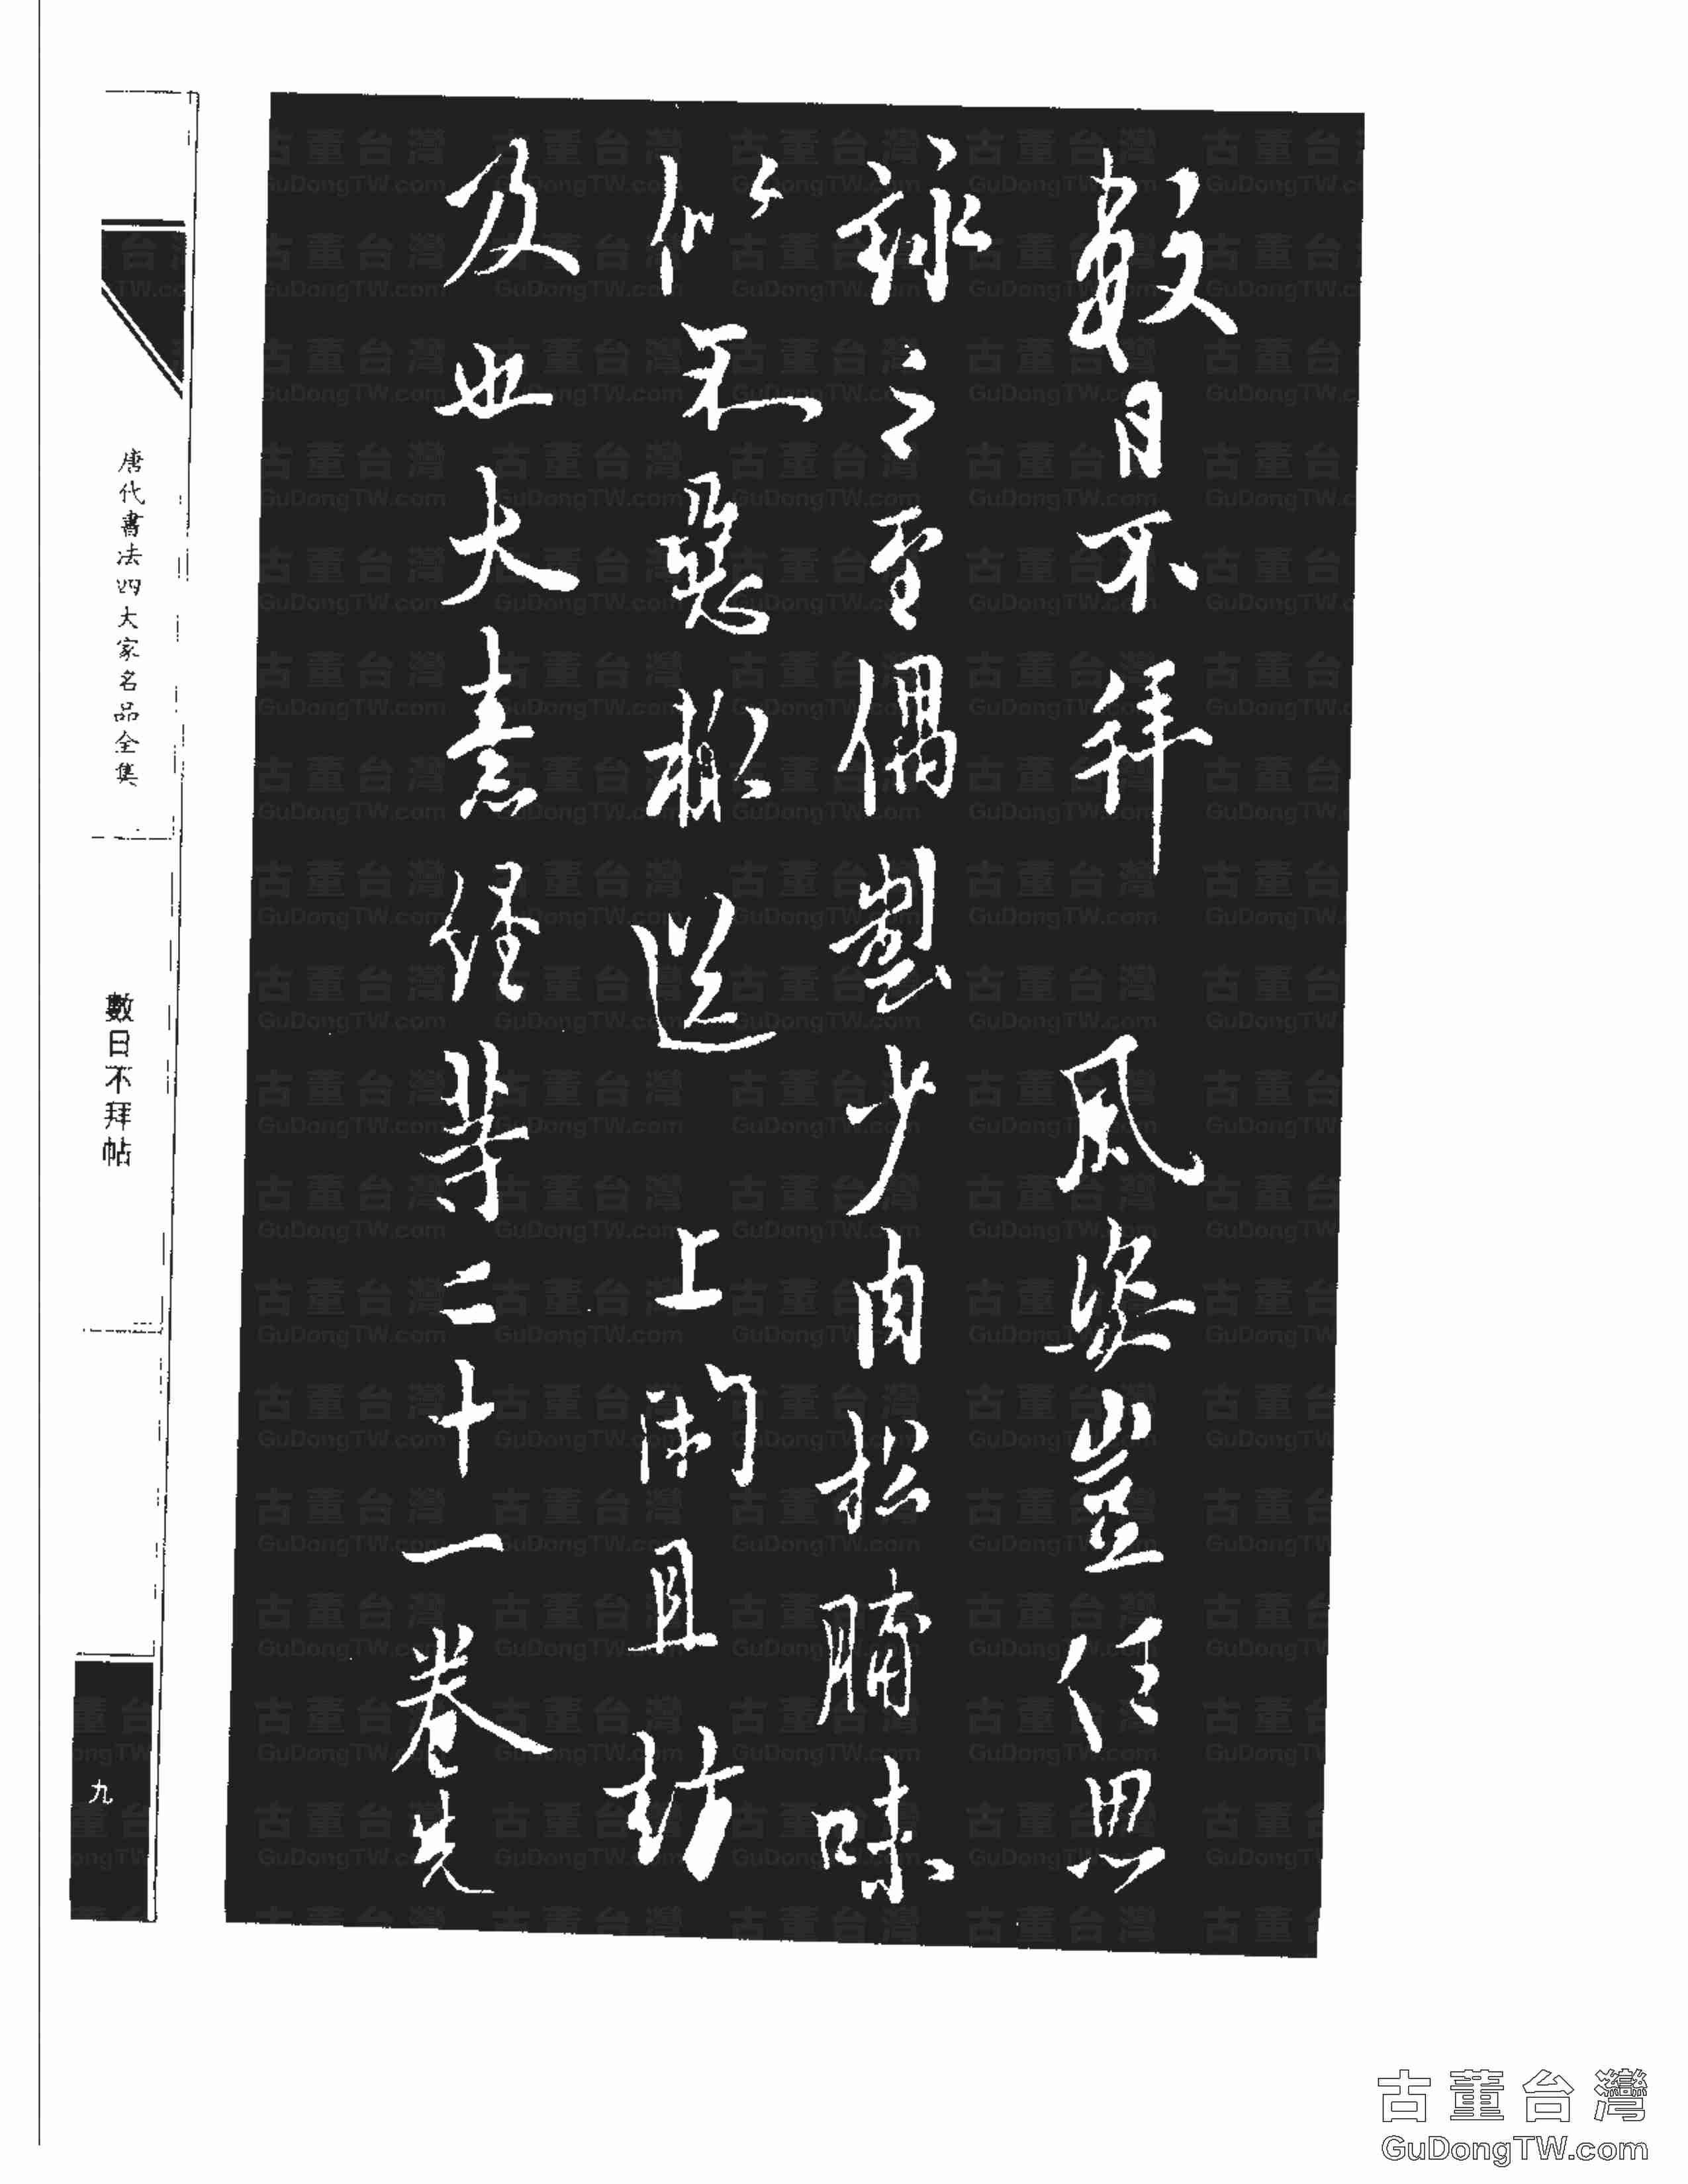 數日不拜風姿豈任思
詠之至偶製少肉松脯味
似不惡輒送上閑且訪
及也大素經等二十一卷先
唐代書法四大家名品全集
數日不拜帖
九
古董台灣
GuDongTW.com